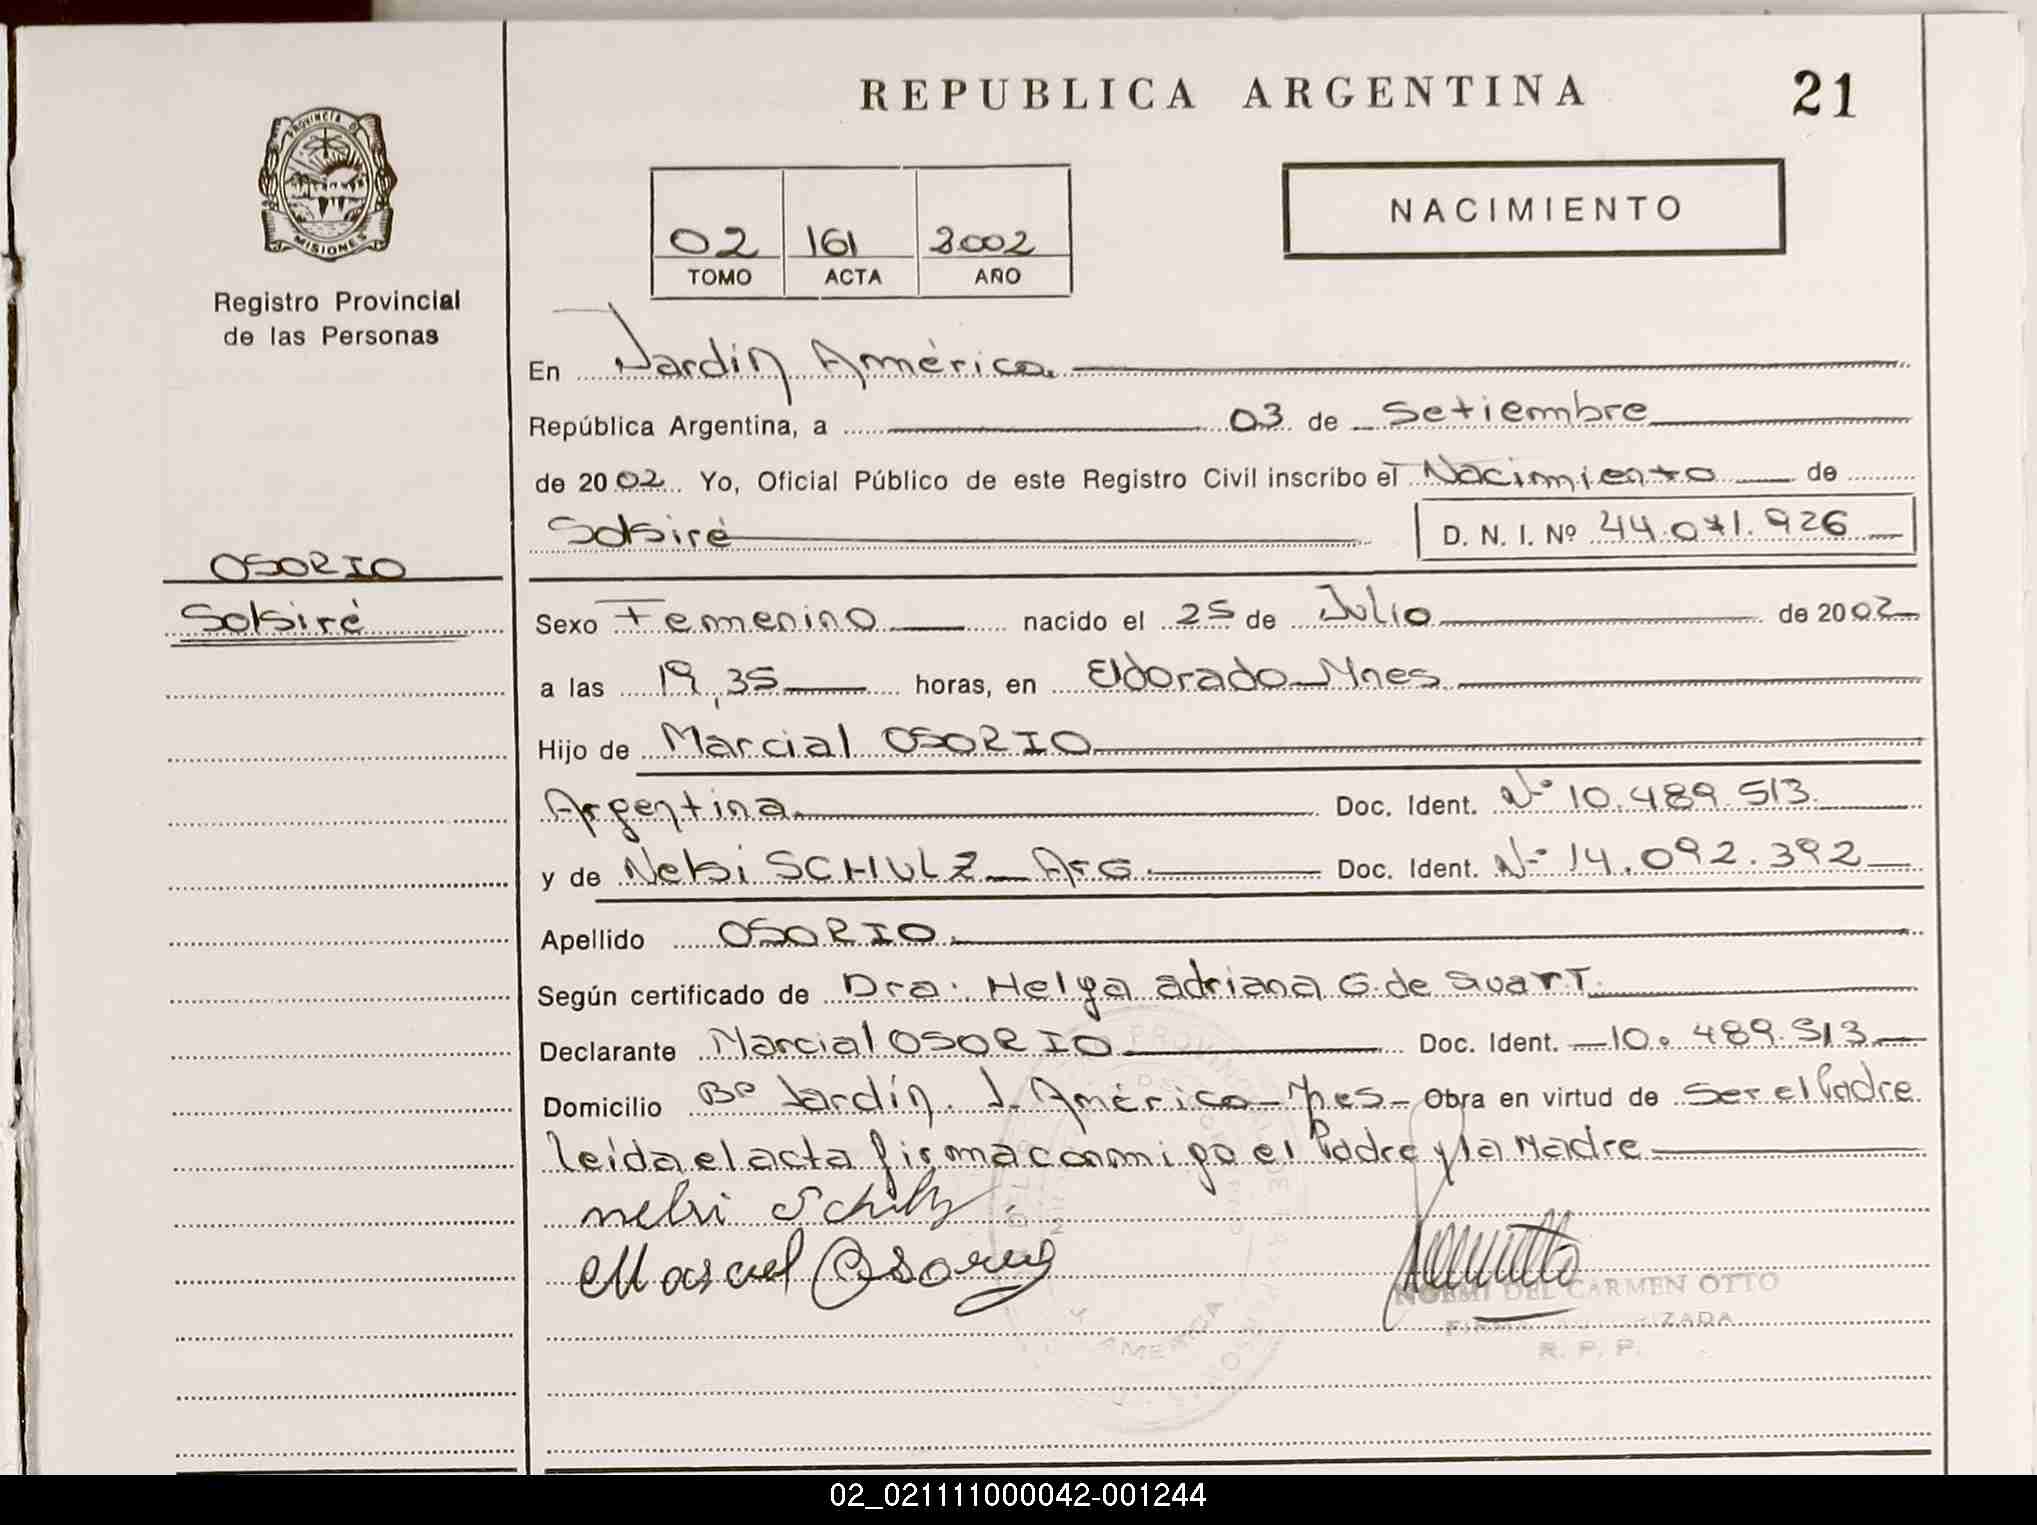 REPUBLICA ARGENTINA
21
PROVINCIA DE
MISIONES
Registro Provincial
de las Personas
02 161 2002
TOMO ACTA AÑO
NACIMIENTO
En Jardín América
República Argentina, a 03 de Setiembre
de 2002 Yo, Oficial Público de este Registro Civil inscribo el Nacimiento de
D. N. I. Nº
OSORIO
Sexo Femenino nacido el 25 de Julio de 2002
a las 19,35 horas, en Eldorado Mnes
Hijo de Marcial OSORIO
Argentina Doc. Ident. Nº 10.489.513
y de SCHULZ Arg. Doc. Ident. Nº 14.092.392
Apellido OSORIO
Según certificado de Dra. Helga adriana G. de
Declarante Marcial OSORIO Doc. Ident. 10.489.513
Domicilio Bº Jardín. J. América - Mnes - Obra en virtud de Ser el Padre
leída el acta firma conmigo el Padre y la Madre
NOEMI DEL CARMEN OTTO
R. P. P.
02_021111000042-001244